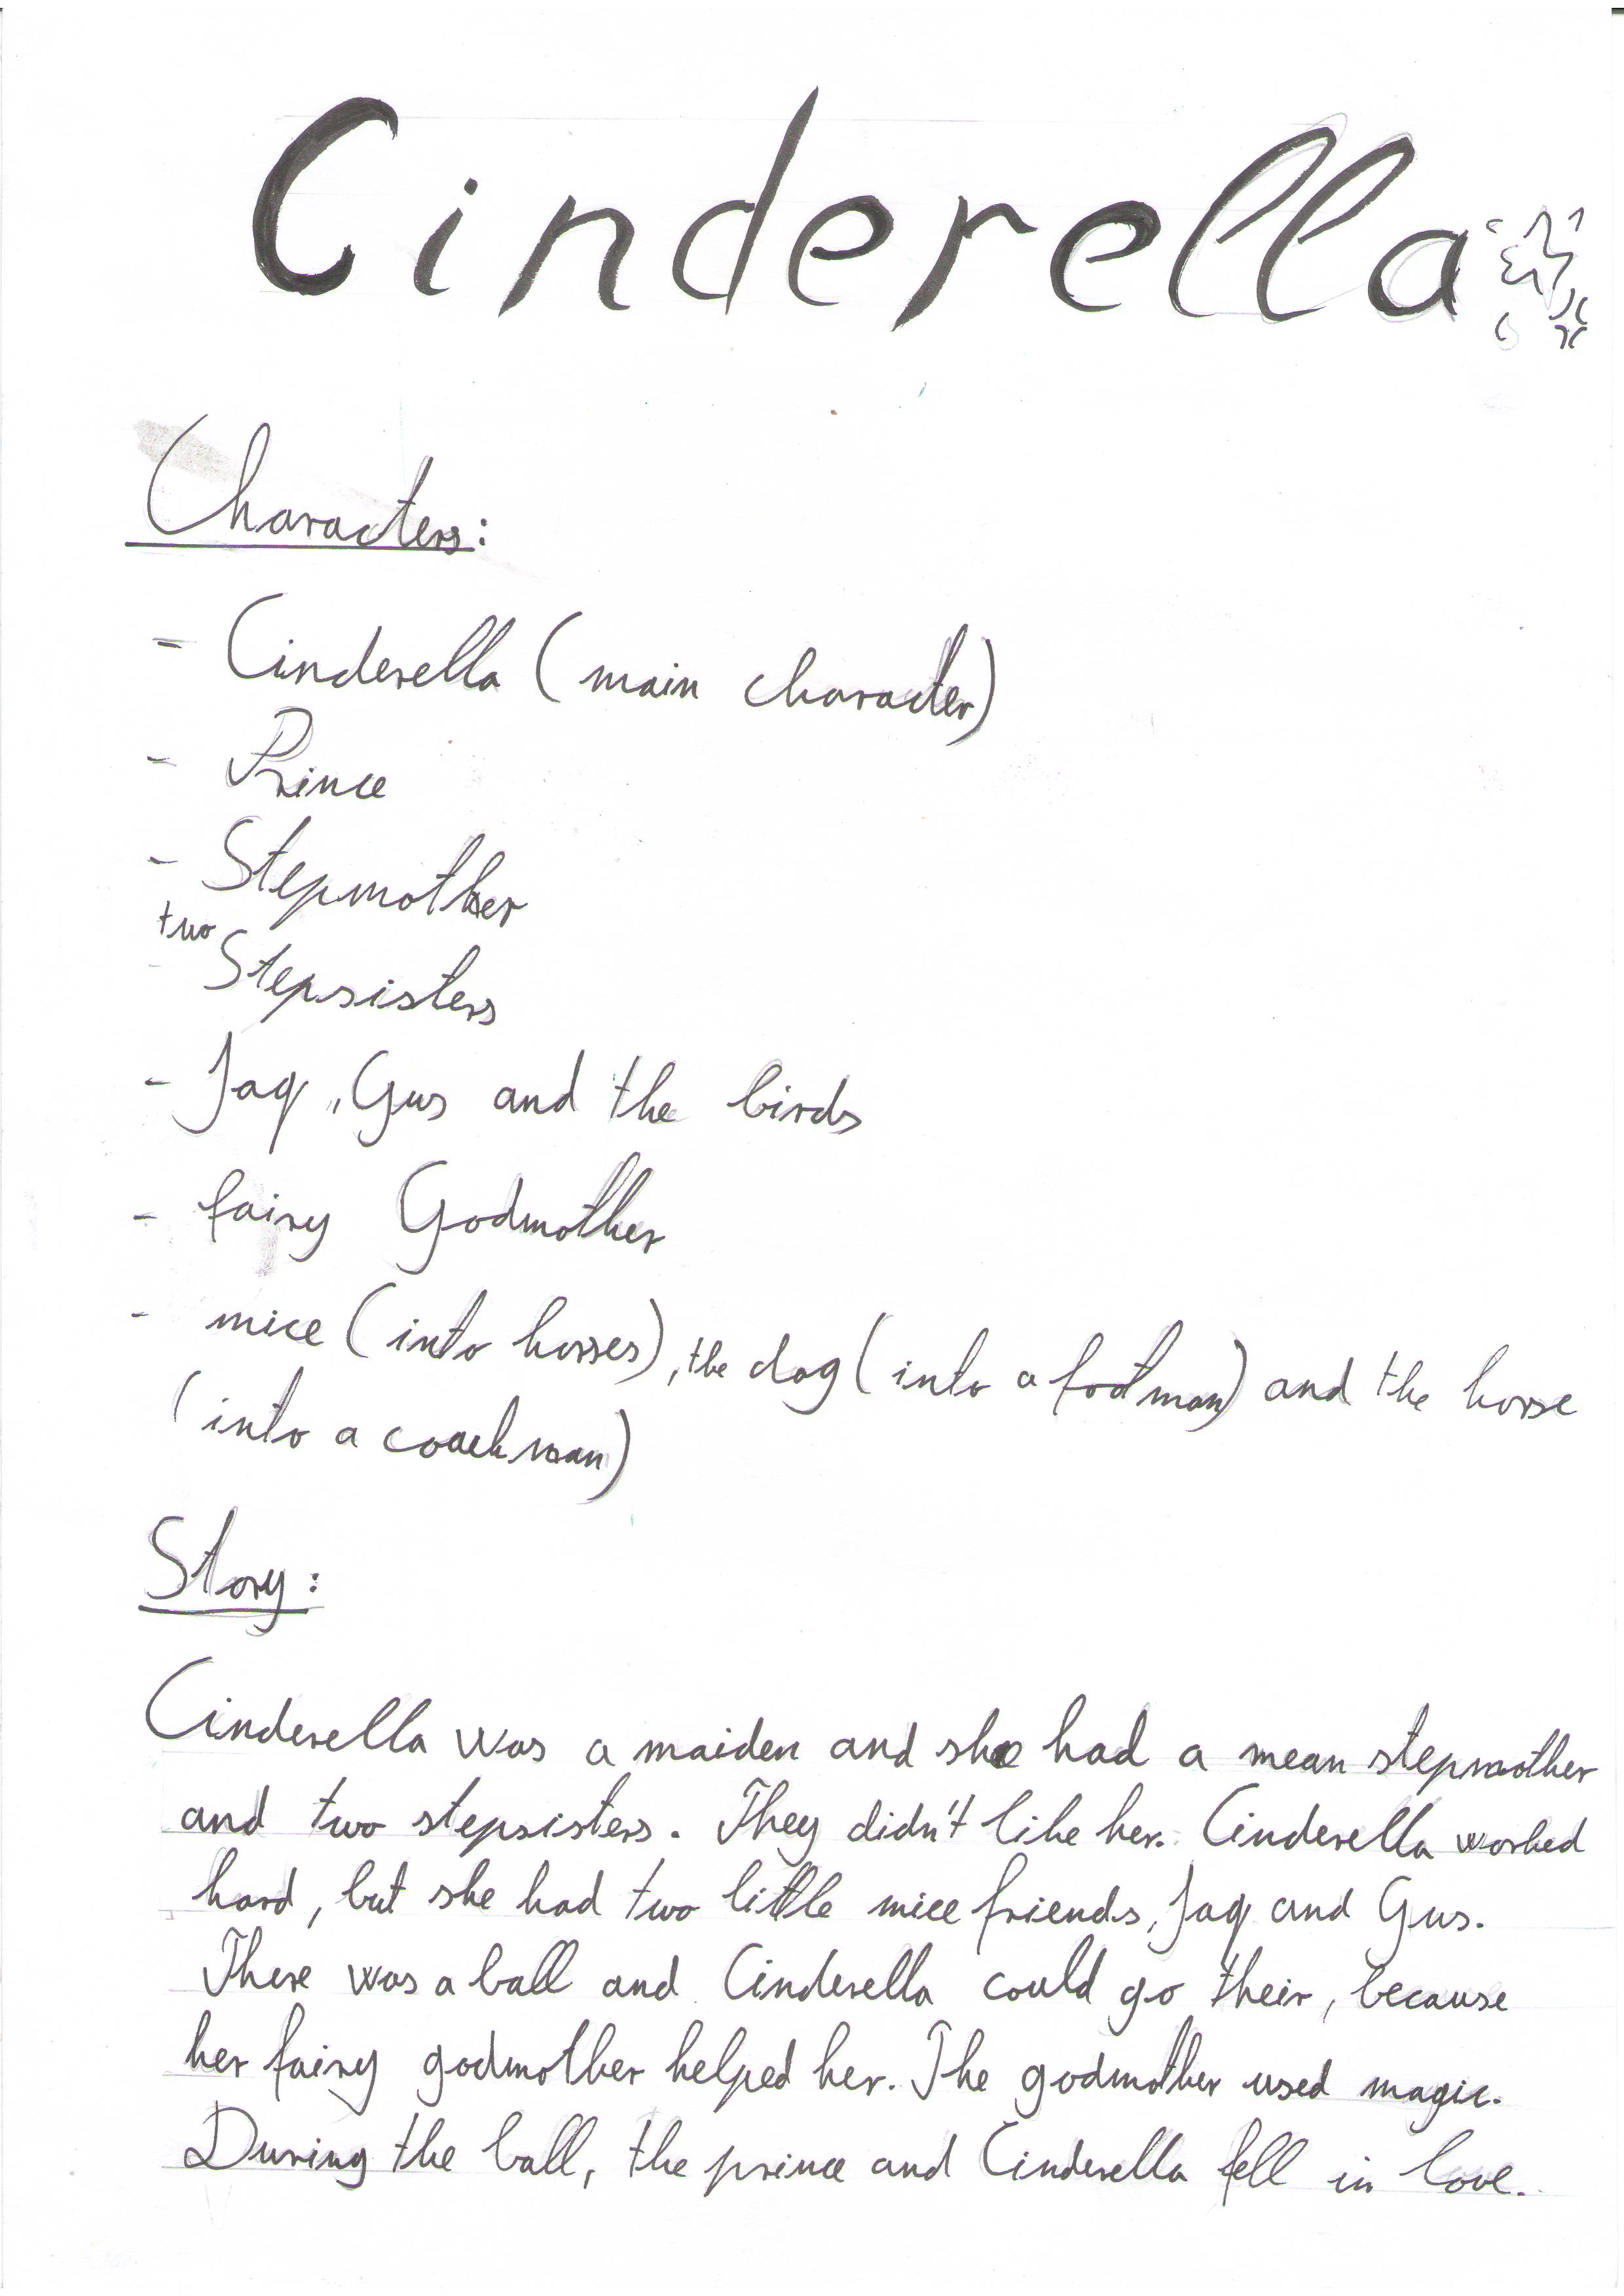 Cinderella
Characters:
- Cinderella (main character)
- Prince
- Stepmother
two
- Stepsisters
- Jaq, Gus and the birds
- fairy Godmother
- mice (into horses), the dog (into a footman) and the horse
(into a coachman)
Story:
Cinderella was a maiden and she had a mean stepmother
and two stepsisters. They didn't like her. Cinderella worked
hard, but she had two little mice friends, Jaq and Gus.
There was a ball and Cinderella could go their, because
her fairy godmother helped her. The godmother used magic.
During the ball, the prince and Cinderella fell in love.